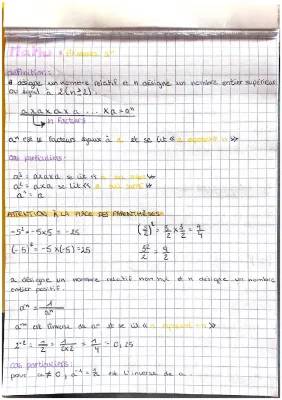 Maths :
définition :
a désigne un nombre relatif et n désigne un nombre entier supérieur
ou égal à 2 (n≥2).
a x a x a x a ... x a = aⁿ
n facteurs
aⁿ est le facteurs égaux à a et se lit « a exposant n »
cas particuliers :
a³ = a x a x a se lit « a au cube »
a² = a x a se lit « a au carré »
a¹ = a
ATTENTION À LA PLACE DES PARENTHÈSES
-5² = -5x5 = -25
(-5)² = -5 x (-5) = 25
a désigne un nombre relatif non nul et n désigne un nombre
entier positif.
a⁻ⁿ = 1/aⁿ
a⁻ⁿ est l'inverse de aⁿ et se lit « a exposant -n »
2⁻² = 1/2² = 1/2x2 = 1/4 = 0,25
cas particuliers :
pour a≠0, a⁻¹ = 1/a est l'inverse de a.